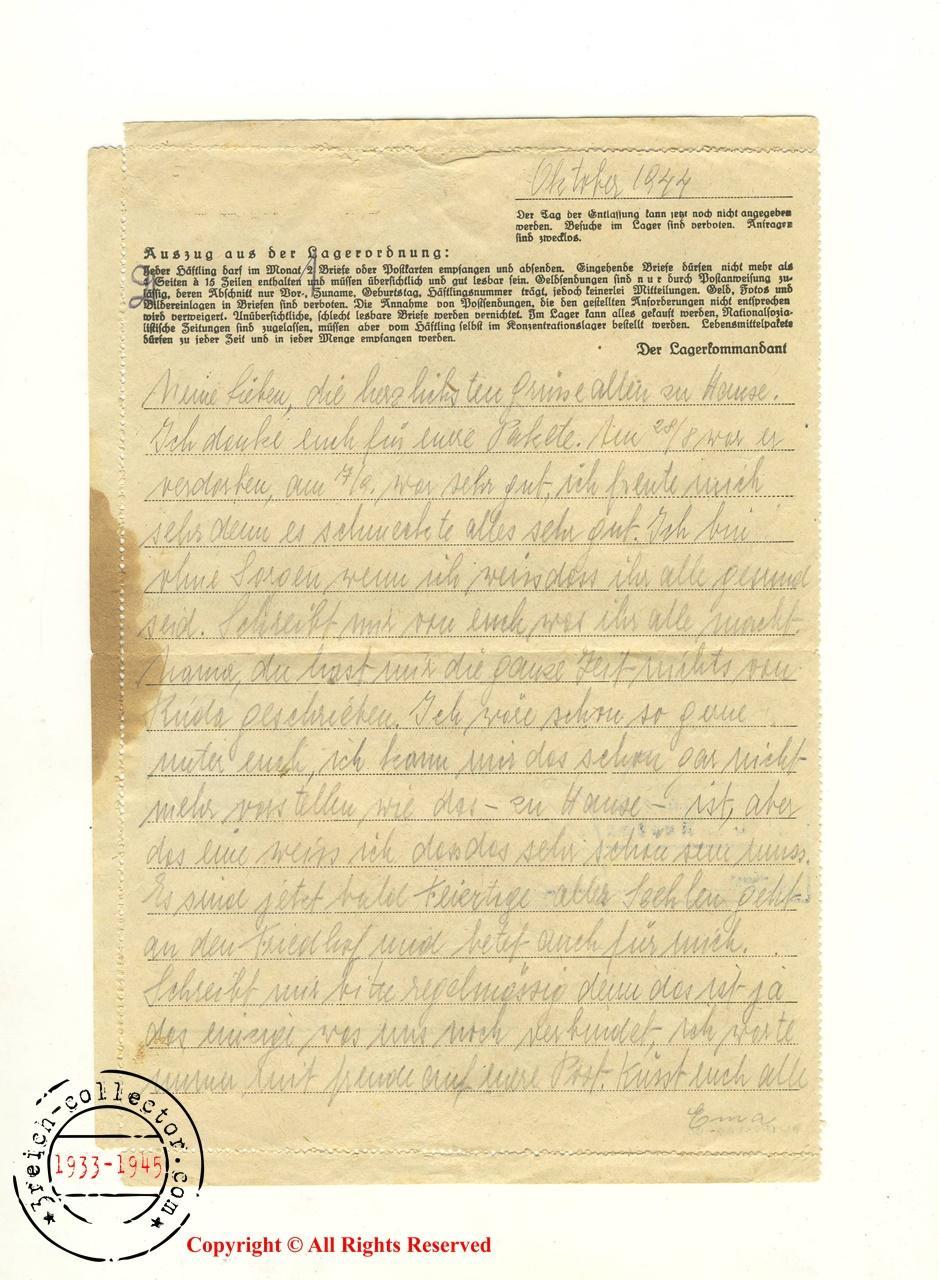 Oktober 1944
Der Tag der Entlassung kann jetzt noch nicht angegeben
werden. Besuche im Lager sind verboten. Anfragen
sind zwecklos.
Auszug aus der Lagerordnung:
Jeder Häftling darf im Monat 2 Briefe oder Postkarten empfangen und absenden. Eingehende Briefe dürfen nicht mehr als
Seiten à 15 Zeilen enthalten und müssen übersichtlich und gut lesbar sein. Geldsendungen sind nur durch Postanweisung zu-
lässig, deren Abschnitt nur Vor-, Zuname, Geburtstag, Häftlingsnummer trägt, jedoch keinerlei Mitteilungen. Geld, Fotos und
Bildereinlagen in Briefen sind verboten. Die Annahme von Postsendungen, die den gestellten Anforderungen nicht entsprechen
wird verweigert. Unübersichtliche, schlecht lesbare Briefe werden vernichtet. Im Lager kann alles gekauft werden, Nationalsozia-
listische Zeitungen sind zugelassen, müssen aber vom Häftling selbst im Konzentrationslager bestellt werden. Lebensmittelpakete
dürfen zu jeder Zeit und in jeder Menge empfangen werden.
Der Lagerkommandant
Meine Lieben, die herzlichsten Grüsse allen zu Hause.
Ich danke euch für eure Pakete. Am 28/8 war er
verdorben, am 17/9. war sehr gut, ich freute mich
sehr denn es schmeckte alles sehr gut. Ich bin
ohne Sorgen wenn ich weiss dass ihr alle gesund
seid. Schreibt mir von euch was ihr alle macht.
Mama, du hast mir die ganze Zeit nichts von
Ruda geschrieben. Ich wäre schon so gerne
unter euch, ich kann mir das schon gar nicht
mehr vorstellen wie das – zu Hause – ist, aber
das eine weiss ich dass das sehr schön sein muss.
Es sind jetzt bald Feiertage aller Seehlen geht
an den Friedhof und betet auch für mich.
Schreibt mir bitte regelmässig denn das ist ja
das einzige was uns noch verbindet, ich warte
immer mit freude auf eure Post. Küsst euch alle
Ema
3reich-collector.com
1933-1945
Copyright © All Rights Reserved